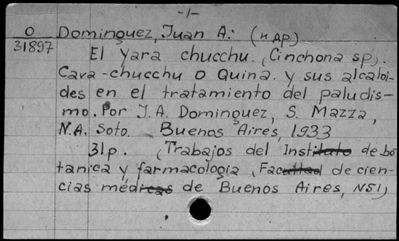 -1-
O Dominguez, Juan A.: (nAp)
31897 El yara chucchu. (Cinchona sp).
Cava-chucchu o Quina. y sus alcaloi-
des en el tratamiento del paludis-
mo. Por J.A. Dominguez, S. Mazza,
N.A. Soto. Buenos Aires, 1933
31p. (Trabajos del Instituto de bo
tanica y farmacologia, Facultad de cien-
cias médicas de Buenos Aires, N51)